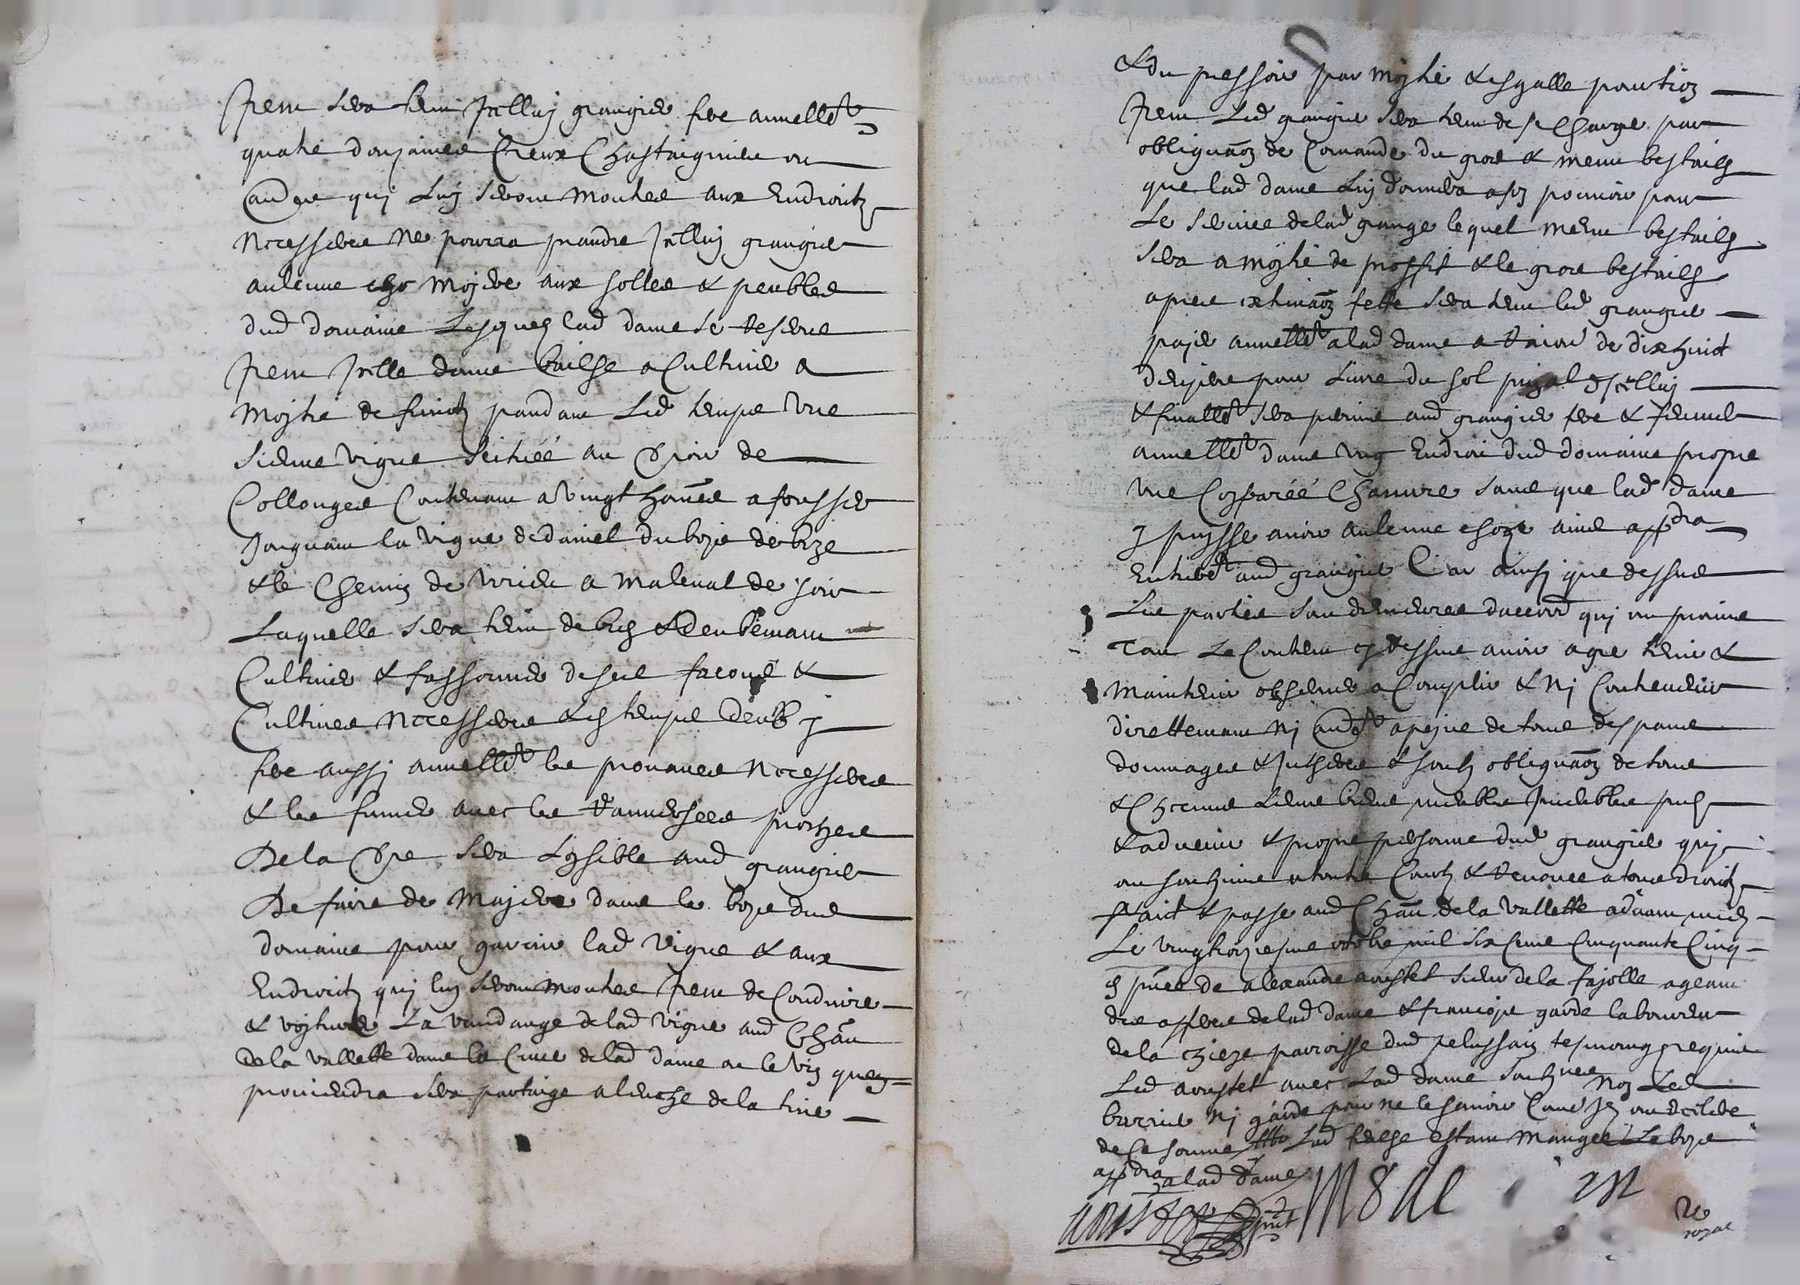 Item sera tenu Icelluy grangier fere annuellemt
quatre douzaines Creux Chastaigniers ou
autre quj Luy seront monstres aux Endroitz
necesseres ne pourra prandre Icelluy grangier
aulcune majere aux solles & peubles
dud domaine Lesquelz lad dame se reserve
Item Icelle dame bailhe a Cultiver a
Mojtié de fruictz pandant Led temps Une
sienne vigne scituéé au de
Collonges Contenant a vingt hoes a foussier
Jougnant la vigne de daniel du boys de bize
& le Chemin de virieu a malleval de soir
Laquelle sera tenu de bien & deubemant
Cultiver & fassonner de ses facons &
Cultures necesseres & en temps deub j
fere aussi annuellemt les prouaves Necesseres
& les fumer avec les
De la sera Loysible aud grangier
De faire de Majere dans les boys dud
domaine pour garnir lad vigne & aux
Endroictz quj luy seront monstres Item de Conduire
& vojturer La vandange de lad vigne aud Chau
de la Vallette dans la Cuve de lad dame ou le vin quen
proviendra sera partaige a lanche de la tine
& du pressoir par mojtié & esgalle portion
Item Led grangier sera tenu de se Charger par
obligaon de Comande du gros & menu bestailh
que lad dame Luy donnera a son pouvoir pour
Le service de lad grange lequel menu bestailh
sera a mojtié de proffit & le gros bestailh
apres extimaon fette sera tenu led grangier
payer annuellemt a lad dame a raison de dix huict
deniers pour Livre du sol prizal dicelluy
& finallemt sera permis aud grangier fere & fermer
annuellemt dans ung Endroit dud domaine propre
une Chanure sans que lad dame
y puysse avoir aulcune choze ains appdra
Entieremt aud grangier Car ainsy que dessus
Les parties sont demeures daccord quj ont promis
Tout Le Contenu cy dessus avoir agre tenir &
Maintenir observer acomplir & Nj Contrevenir
directtemant Nj a pejne de tous despans
dommages & Interes & soubz obligaon de tous
& Checuns Leurs biens meubles Immeubles presz
& advenir & propre personne dud grangier quj
ont soubzmis a toutes Courtz & renonce a tous droictz
Faict & passe aud Chau de la Vallette advant midj
Le vingtroiziesme octobre mil six Cens Cinquante Cinq
En pnce de alexandre aristet sieur de la fajolle agent
des afferes de lad dame & francoys garde laboureur
de la paroisse dud pelussain tesmoingz requis
Led aristet avec Lad dame soubznes Non Led
barrier Nj garde pour ne le scavoir Come Jlz ont declere
de Ce sommes Lad estant mangee Le boys
appdra a lad dame
aristet
royal